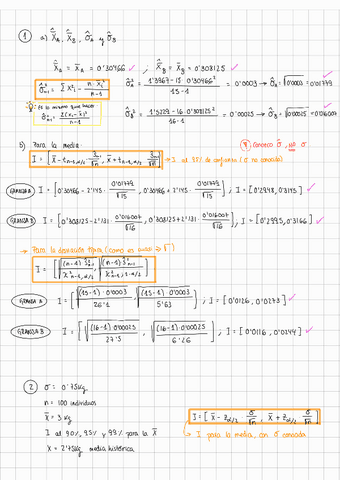 ① a) X̂_A, X̂_B, σ̂_A y σ̂_B
X̂_A = x̄_A = 0'30466 ✓ ; X̂_B = x̄_B = 0'308125 ✓
σ̂²_n-1 = Σx²_i - n·x̄² / n-1
σ̂²_A = 1'3967-15·0'30466² / 15-1 = 0'0003 → σ̂_A = √0'0003 = 0'01779
Es lo mismo que hacer
σ̂²_n-1 = Σ(x_i - x̄)² / n-1
σ̂_B² = 1'5229-16·0'308125² / 16-1 = 0'00025 → σ̂_B = √0'00025 = 0'016007
b) Para la media:
I = [x̄ - t_n-1,α/2 · ŝ/√n , x̄ + t_n-1,α/2 · ŝ/√n] → I al 95% de confianza (σ no conocida)
conozco σ̂, NO σ
GRANJA A I = [0'30466 - 2'145 · 0'01779/√15 , 0'30466 + 2'145 · 0'01779/√15] ; I = [0'2948, 0'3145] ✓
GRANJA B I = [0'308125 - 2'131 · 0'016007/√16 , 0'308125 + 2'131 · 0'016007/√16] ; I = [0'2995, 0'3166] ✓
→ Para la desviación típica (como es σ
I = [√((n-1) ŝ²_n-1 / χ²_n-1,α/2) , √((n-1) ŝ²_n-1 / χ²_n-1,1-α/2)]
GRANJA A I = [√((15-1)·0'0003 / 26'1) , √((15-1)·0'0003 / 5'63)] ; I = [0'0126, 0'0273] ✓
GRANJA B I = [√((16-1)·0'00025 / 27'5) , √((16-1)·0'00025 / 6'26)] ; I = [0'0116, 0'0244] ✓
② σ = 0'75kg
n = 100 individuos
x̄ = 3 kg
I = [x̄ - z_α/2 · σ/√n , x̄ + z_α/2 · σ/√n]
I al 90%, 95% y 99% para la x̄
→ I para la media, con σ conocida
x = 2'75kg media histórica